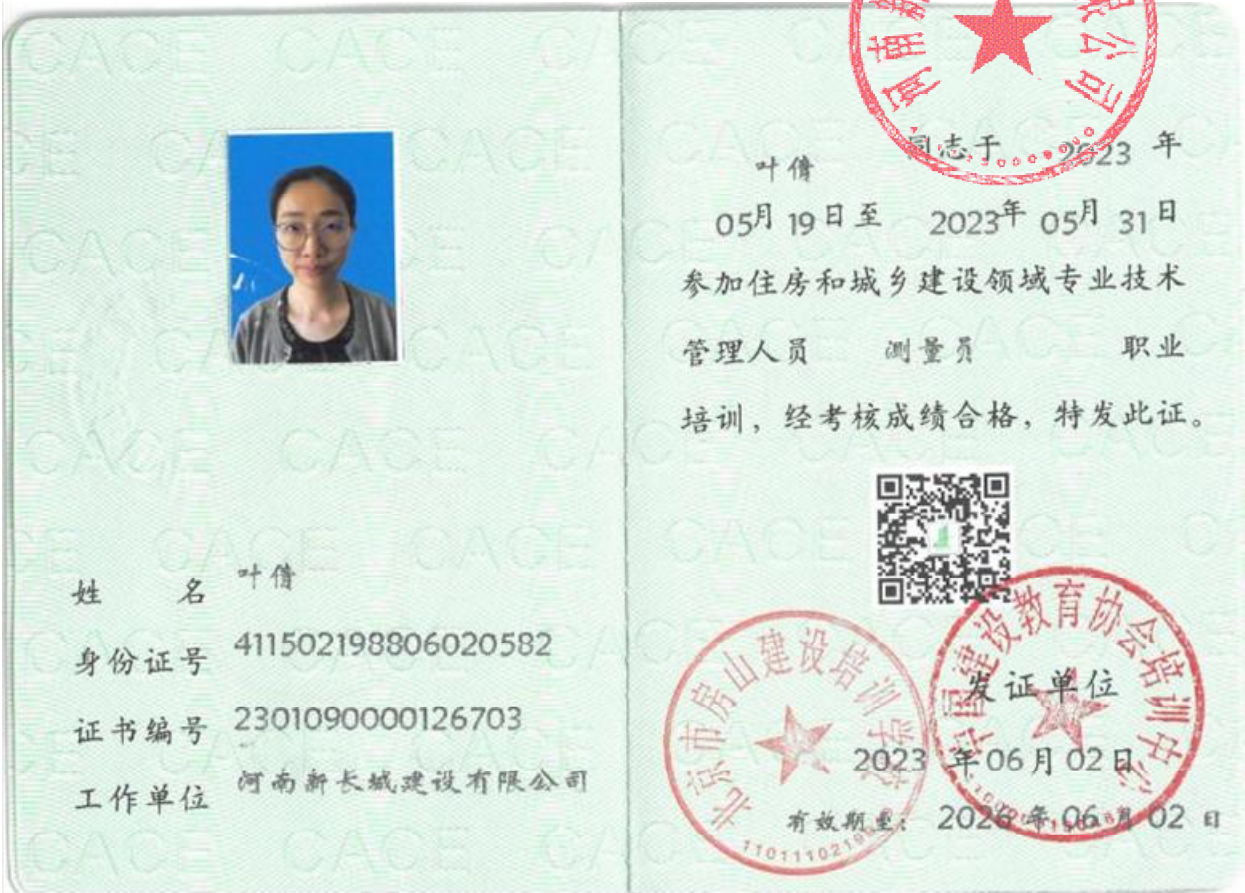 CACE
姓 名 叶倩
身份证号 411502198806020582
证书编号 2301090000126703
工作单位 河南新长城建设有限公司
叶倩 同志于 2023 年
05月 19 日至 2023年 05月 31 日
参加住房和城乡建设领域专业技术
管理人员 测量员 职业
培训，经考核成绩合格，特发此证。
北京市房山建设培训学校
中国建设教育协会培训中心
发证单位
2023 年 06 月 02 日
有效期至： 2026 年 06 月 02 日